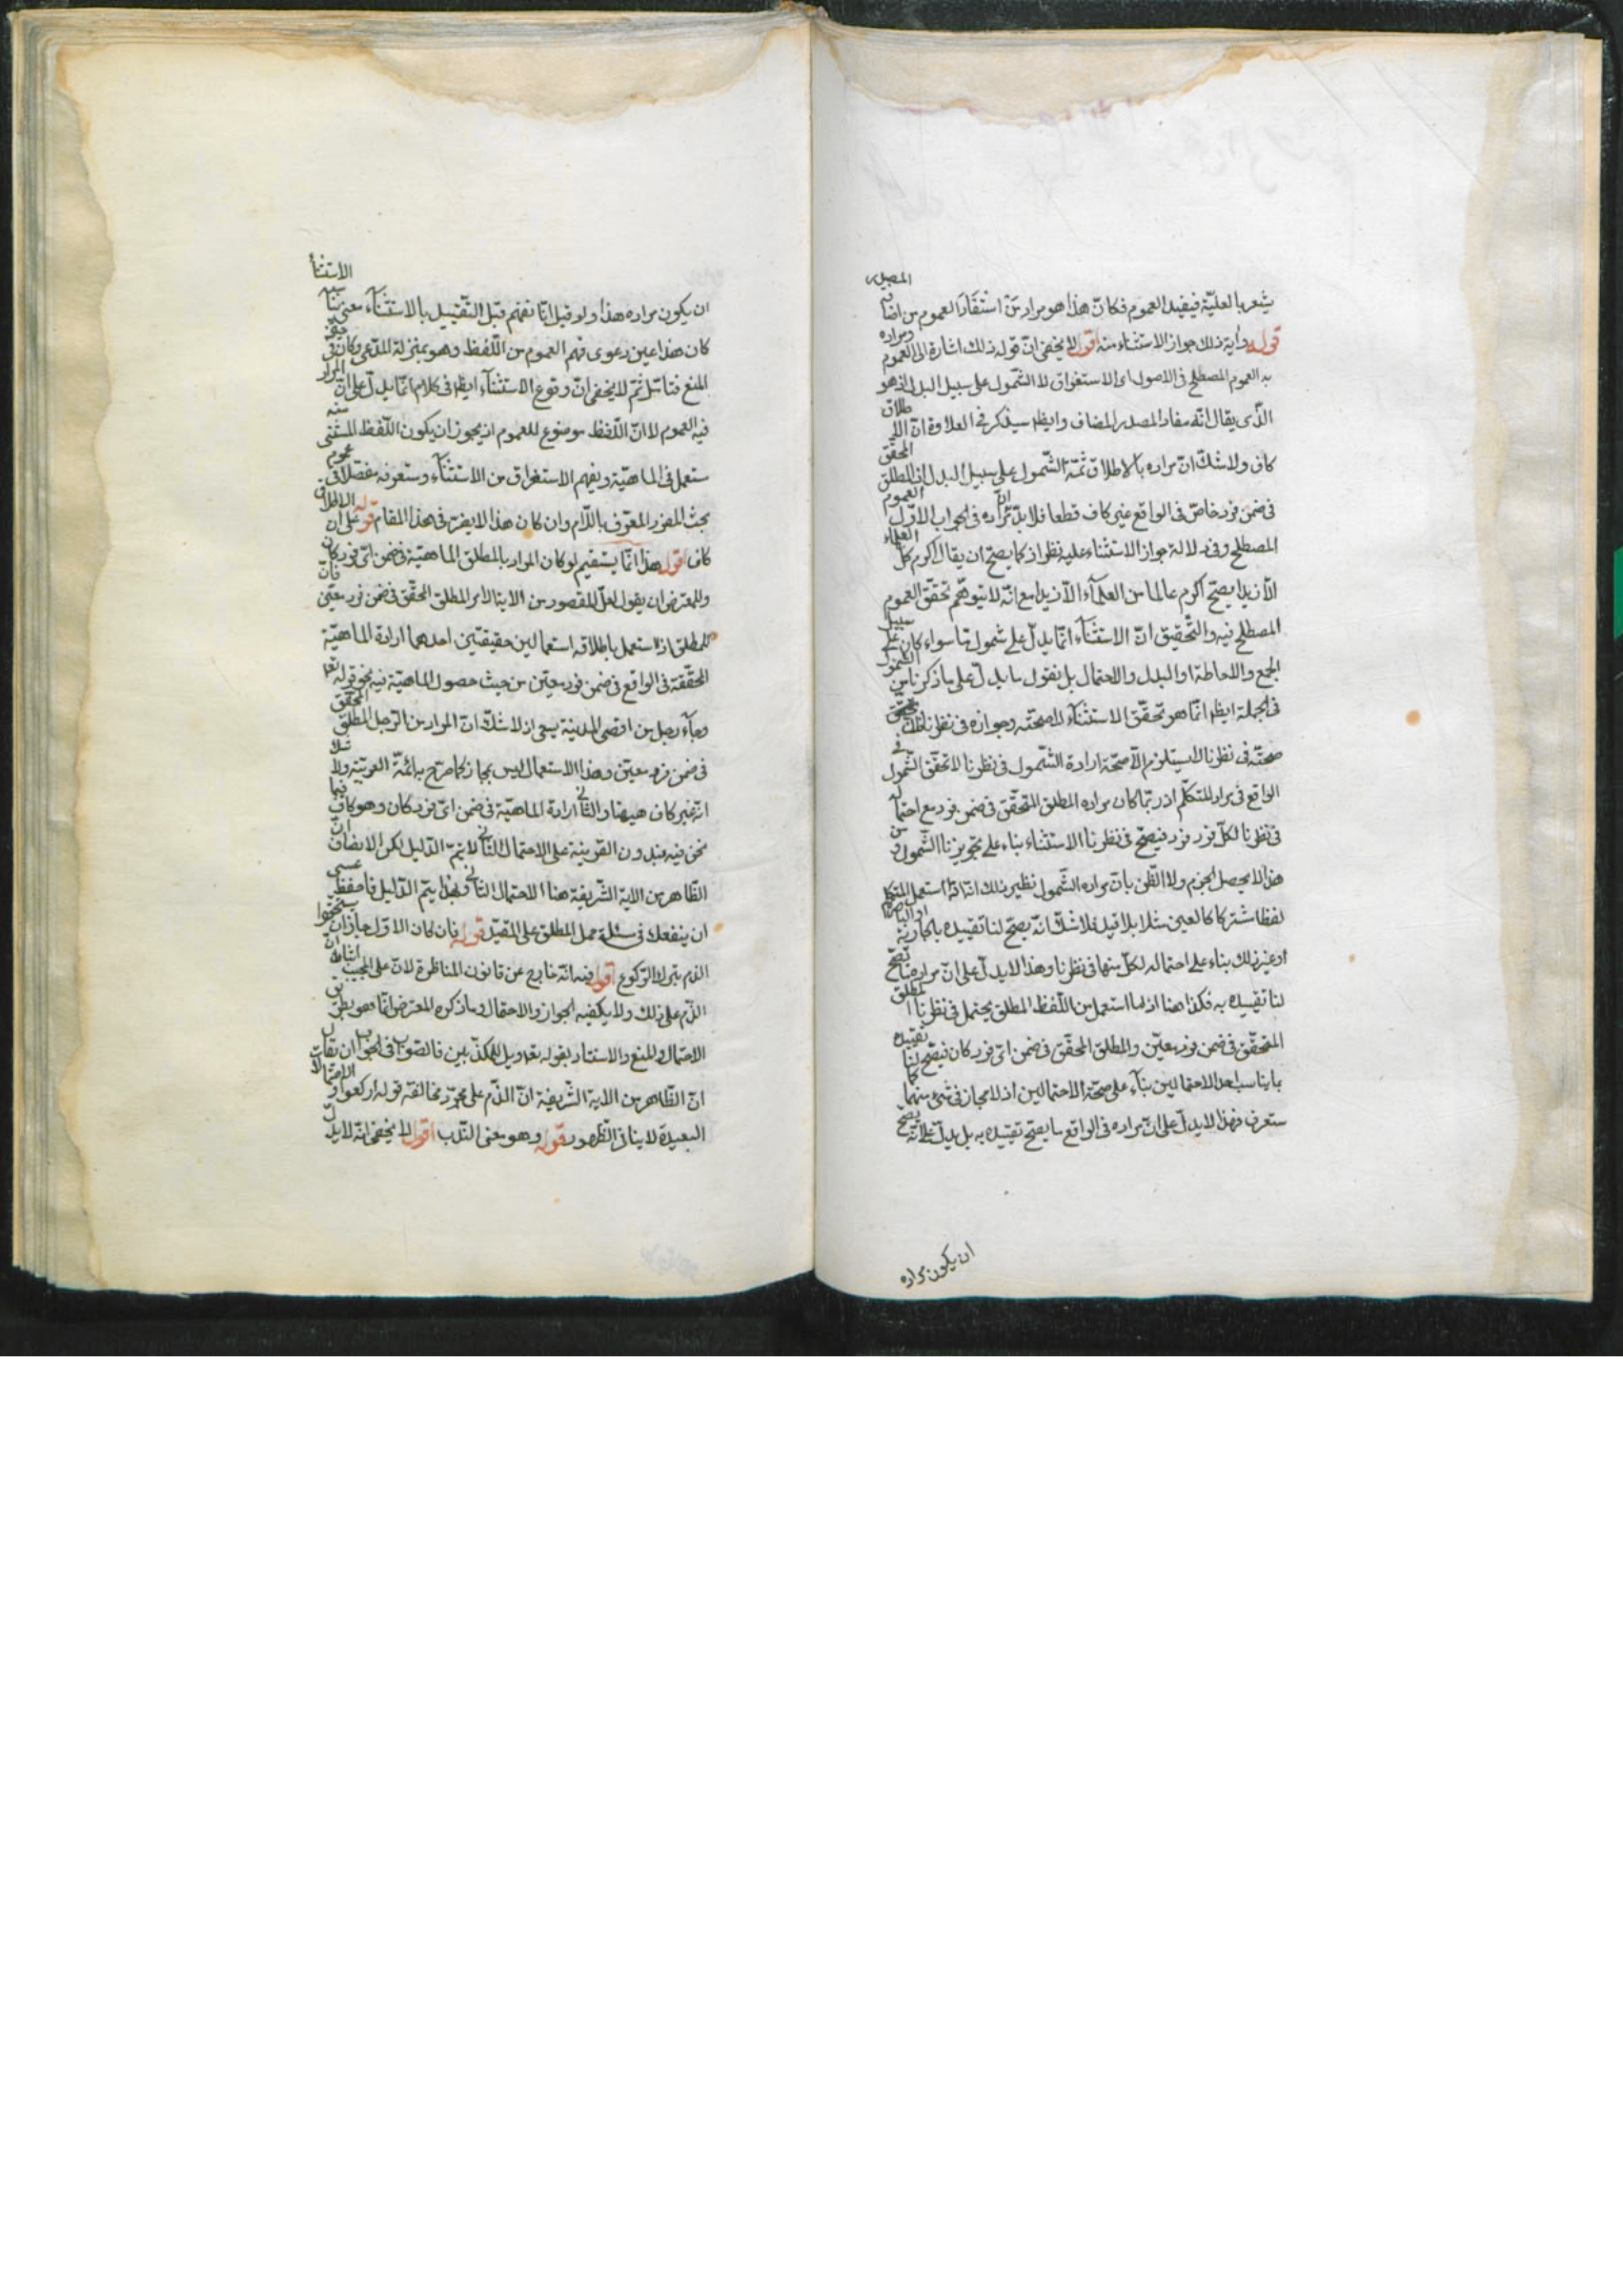 يشعر بالعليّة فيفيد العموم فكانّ هذا هو مراد من استفاد العموم من اضافة المصدر
قوله وآية ذلك جواز الاستثناء منه اقول لا يخفى انّ قوله ذلك اشارة الى العموم ومراده
به العموم المصطلح فى الاصول اى الاستغراق لا الشمول على سبيل البدل اذ هو
الّذى يقال انّه مفاد المصدر المضاف وايظا سيذكر فى العلاوة انّ الاطلاق
كاف ولا شكّ انّ مراده بالاطلاق ثمّة الشّمول على سبيل البدل اذ المطلق المحقّق
فى ضمن فرد خاصّ فى الواقع غير كاف قطعا فلا بدّ انّ مراده فى الجواب الاوّل العموم
المصطلح وفى دلالة جواز الاستثناء عليه نظر اذ كما يصحّ ان يقال اكرم كلّ العلماء
الّا زيدا يصحّ اكرم عالما من العلمآء الّا زيدا مع انّه لا يتوهّم تحقّق العموم
المصطلح فيه والتّحقيق انّ الاستثنآء انّما يدلّ على شمول ما سواء كان على سبيل
الجمع والاحاطة او البدل والاحتمال بل نقول ما يدلّ على ما ذكرنا من الشمول
فى الجملة ايظا انّما هو تحقّق الاستثنآء لا صحّته وجوازه فى نظرنا لانّ تحقّق
صحّته فى نظرنا لا يستلزم الّا صحّة ارادة الشّمول فى نظرنا لا تحقّق الشّمول فى
الواقع فى مراد المتكلّم اذ ربّما كان مراده المطلق المتحقّق فى ضمن فرد مع احتماله
فى نظرنا لكلّ فرد فرد فيصحّ فى نظرنا الاستثناء بناء على تجويزنا الشّمول ومن
هذا لا يحصل الجزم ولا الظّن بانّ مراده الشّمول نظير ذلك انّه اذا استعمل المتكلم
لفظا مشتركا كالعين مثلا بلا قيد فلا شكّ انّه يصحّ لنا تقييده بالجارية او الباصرة
او غير ذلك بناء على احتماله لكلّ منها فى نظرنا وهذا لا يدلّ على انّ مراده ما يصحّ
لنا تقييده به فكذا هنا اذ لمّا استعمل من اللّفظ المطلق يحتمل فى نظرنا المطلق
المتحقّق فى ضمن فرد معيّن والمطلق المحقّق فى ضمن اىّ فرد كان فيصحّ لنا تقييده
بما يناسب احد الاحتمالين بنآء على صحّة الاحتمالين اذ لا مجاز فى شىء منهما كما
ستعرف فهذا لا يدلّ على انّ مراده فى الواقع ما يصحّ تقييده به بل يدلّ على انّه يصحّ
ان يكون مراده
ان يكون مراده هذا ولو قيل انّا نفهم قبل التّقييد بالاستثنآء معنى يناسبه الاستثناء
كان هذا عين دعوى فهم العموم من اللّفظ وهو بمنزلة المدّعى وكان فى حيّز
المنع فتامّل ثمّ لا يخفى انّ وقوع الاستثنآء ايظا فى كلام انّما يدلّ على انّ المراد
فيه العموم لا انّ اللّفظ موضوع للعموم اذ يجوز ان يكون اللّفظ المستثنى منه
مستعمل فى الماهيّة ويفهم الاستغراق من الاستثنآء وستعرفه مفصّلا فى عموم
بحث المفرد المعرّف باللّام وان كان هذا لا يضرّ فى هذا المقام قوله على انّ الاطلاق
كاف اقول هذا انّما يستقيم لو كان المراد بالمطلق الماهيّة فى ضمن اىّ فرد كان
وللمعترض ان يقول لعلّ المقصود من الاية الامر المطلق المحقّق فى ضمن فرد معيّن فانّ
للمطلق اذا استعمل باطلاقه استعمالين حقيقيّين احدهما ارادة الماهيّة
المحقّقة فى الواقع فى ضمن فرد معيّن من حيث حصول الماهيّة فيه نحو قوله تعا
وجآء رجل من اقصى المدينة يسعى اذ لا شكّ انّ المراد من الرّجل المطلق المحقّق
فى ضمن فرد معيّن وهذا الاستعمال ليس بمجاز كما صرّح به ائمّة العربيّة ولا شكّ
انّه غير كاف هيهنا والثّانى ارادة الماهيّة فى ضمن اىّ فرد كان وهو كاف فيما
نحن فيه فبدون القرينة على الاحتمال الثّانى لا يتمّ الدّليل لكن الانصاف انّ
الظّاهر من الاية الشّريفة هنا الاحتمال الثّانى وبهذا يتمّ الدّليل فاحفظ عسى
ان ينفعك فى مسئلة حمل المطلق على المقيّد قوله فان كان الاوّل جاز ان يستحقّوا
الذم بترك الرّكوع اقول فيه انّه خارج عن قانون المناظرة لانّ على المجيب اثبات انّ
الذّم على ذلك ولا يكفيه الجواز والاحتمال وما ذكره المعترض انّما هو بطريق
الاحتمال والمنع والاستناد بقوله تعا ويل للمكذّبين فالصّواب فى الجواب ان يقال
انّ الظّاهر من الاية الشّريفة انّ الذّم على مجرّد مخالفة قوله اركعوا والاحتمالات
البعيدة لا ينافى الظّهور قوله وهو معنى النّدب اقول لا يخفى انّه لا يدلّ